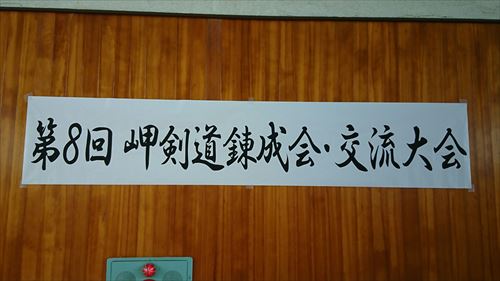 第8回 岬剣道錬成会・交流大会